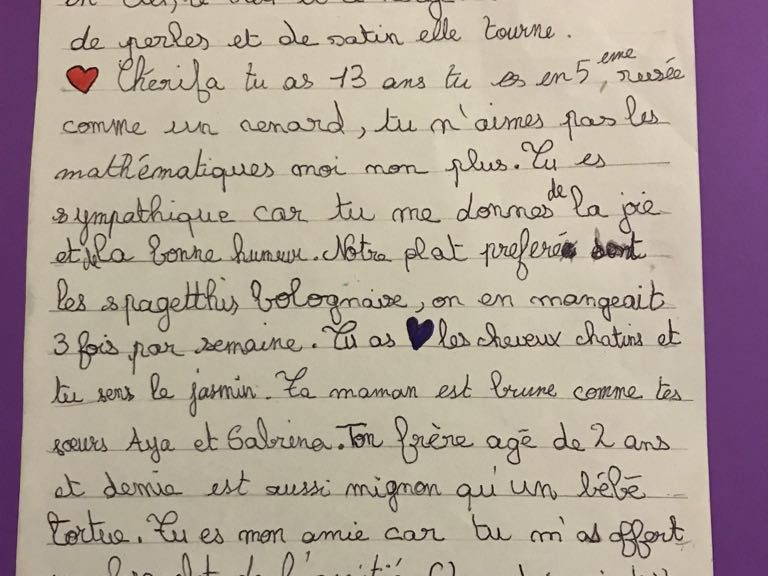 de perles et de satin elle tourne.
Cherifa tu as 13 ans tu es en 5 eme, rusée
comme un renard, tu n'aimes pas les
mathématiques moi non plus. Tu es
sympathique car tu me donnes de la joie
et de la bonne humeur. Notre plat preferé sont
les spagetthis bolognaise, on en mangeait
3 fois par semaine. Tu as les cheveux chatins et
tu sens le jasmin. Ta maman est brune comme tes
sœurs Aya et Sabrina. Ton frère agé de 2 ans
et demie est aussi mignon qu'un bébé
tortue. Tu es mon amie car tu m'as offert